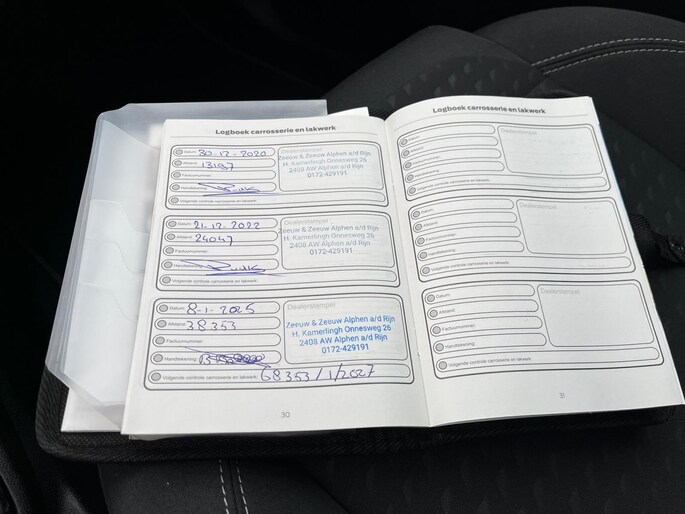 Logboek carrosserie en lakwerk
Datum: 30-12-2020
Afstand: 13197
Factuurnummer:
Handtekening:
Volgende controle carrosserie en lakwerk:
Dealerstempel
Zeeuw & Zeeuw Alphen a/d Rijn
H. Kamerlingh Onnesweg 26
2408 AW Alphen a/d Rijn
0172-429191
Datum: 21-12-2022
Afstand: 24047
Factuurnummer:
Handtekening:
Volgende controle carrosserie en lakwerk:
Dealerstempel
Zeeuw & Zeeuw Alphen a/d Rijn
H. Kamerlingh Onnesweg 26
2408 AW Alphen a/d Rijn
0172-429191
Datum: 8-1-2025
Afstand: 38353
Factuurnummer:
Handtekening:
Volgende controle carrosserie en lakwerk: 68353/1/2027
Dealerstempel
Zeeuw & Zeeuw Alphen a/d Rijn
H. Kamerlingh Onnesweg 26
2408 AW Alphen a/d Rijn
0172-429191
30
Logboek carrosserie en lakwerk
Datum:
Afstand:
Factuurnummer:
Handtekening:
Volgende controle carrosserie en lakwerk:
Dealerstempel
Datum:
Afstand:
Factuurnummer:
Handtekening:
Volgende controle carrosserie en lakwerk:
Dealerstempel
Datum:
Afstand:
Factuurnummer:
Handtekening:
Volgende controle carrosserie en lakwerk:
Dealerstempel
31